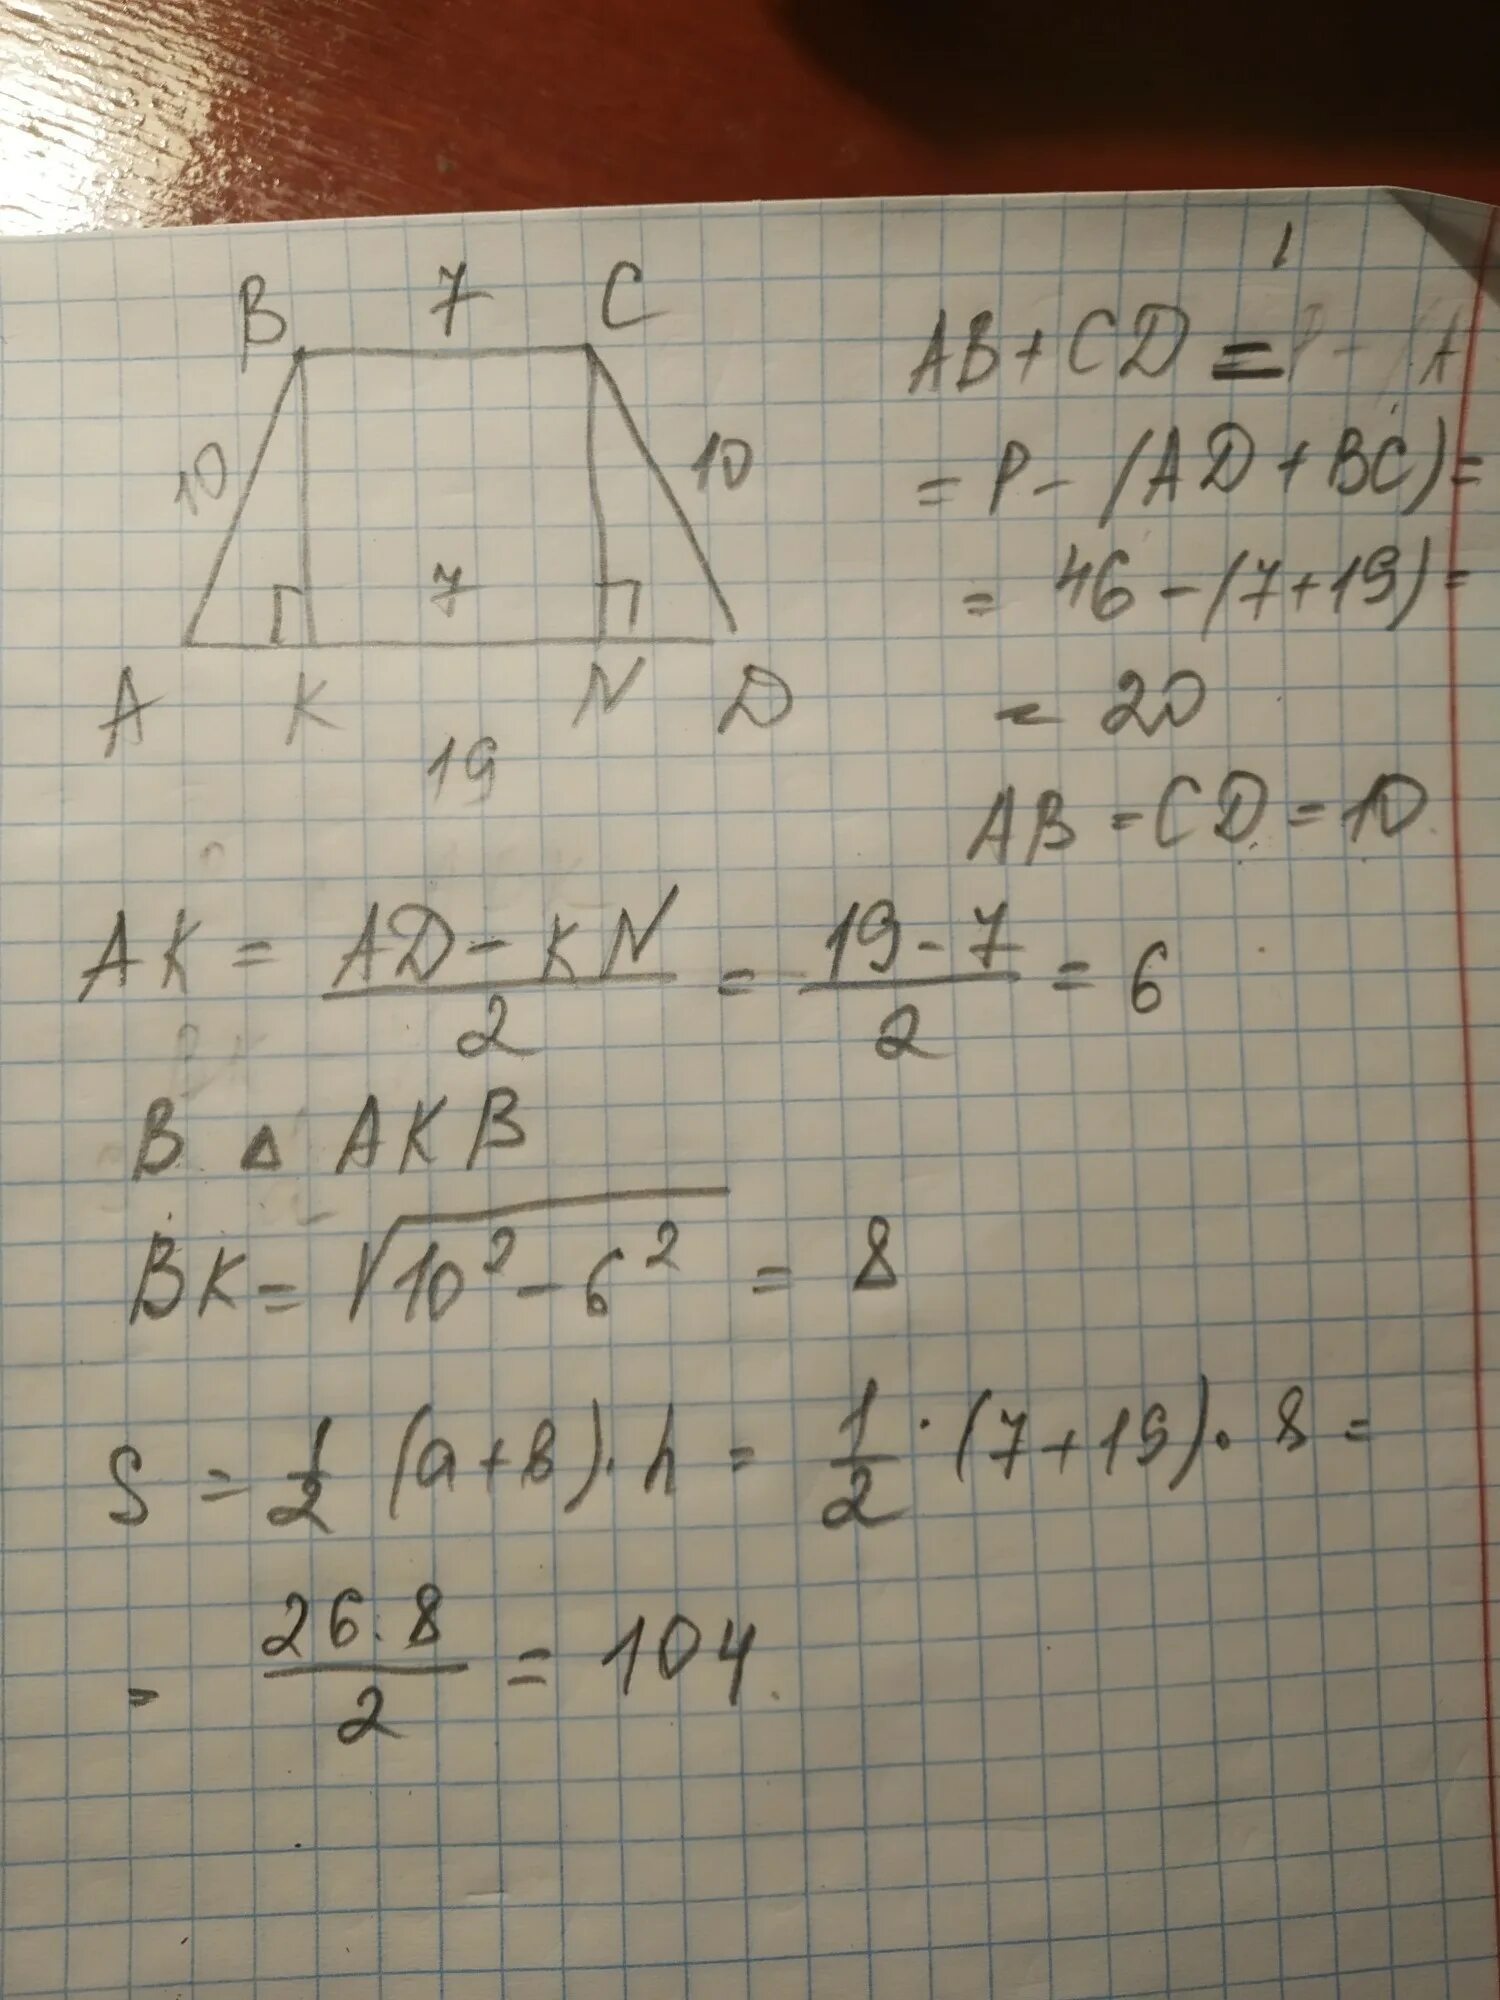 B 7 C
10 10
7
A K N D
19
AB + CD =
= P - (AD + BC) =
= 46 - (7 + 19) =
= 20
AB = CD = 10.
AK = (AD - KN)/2 = (19 - 7)/2 = 6
В △ AKB
BK = √(10² - 6²) = 8
S = 1/2 (a + в) · h = 1/2 · (7 + 19) · 8 =
= (26 · 8)/2 = 104.